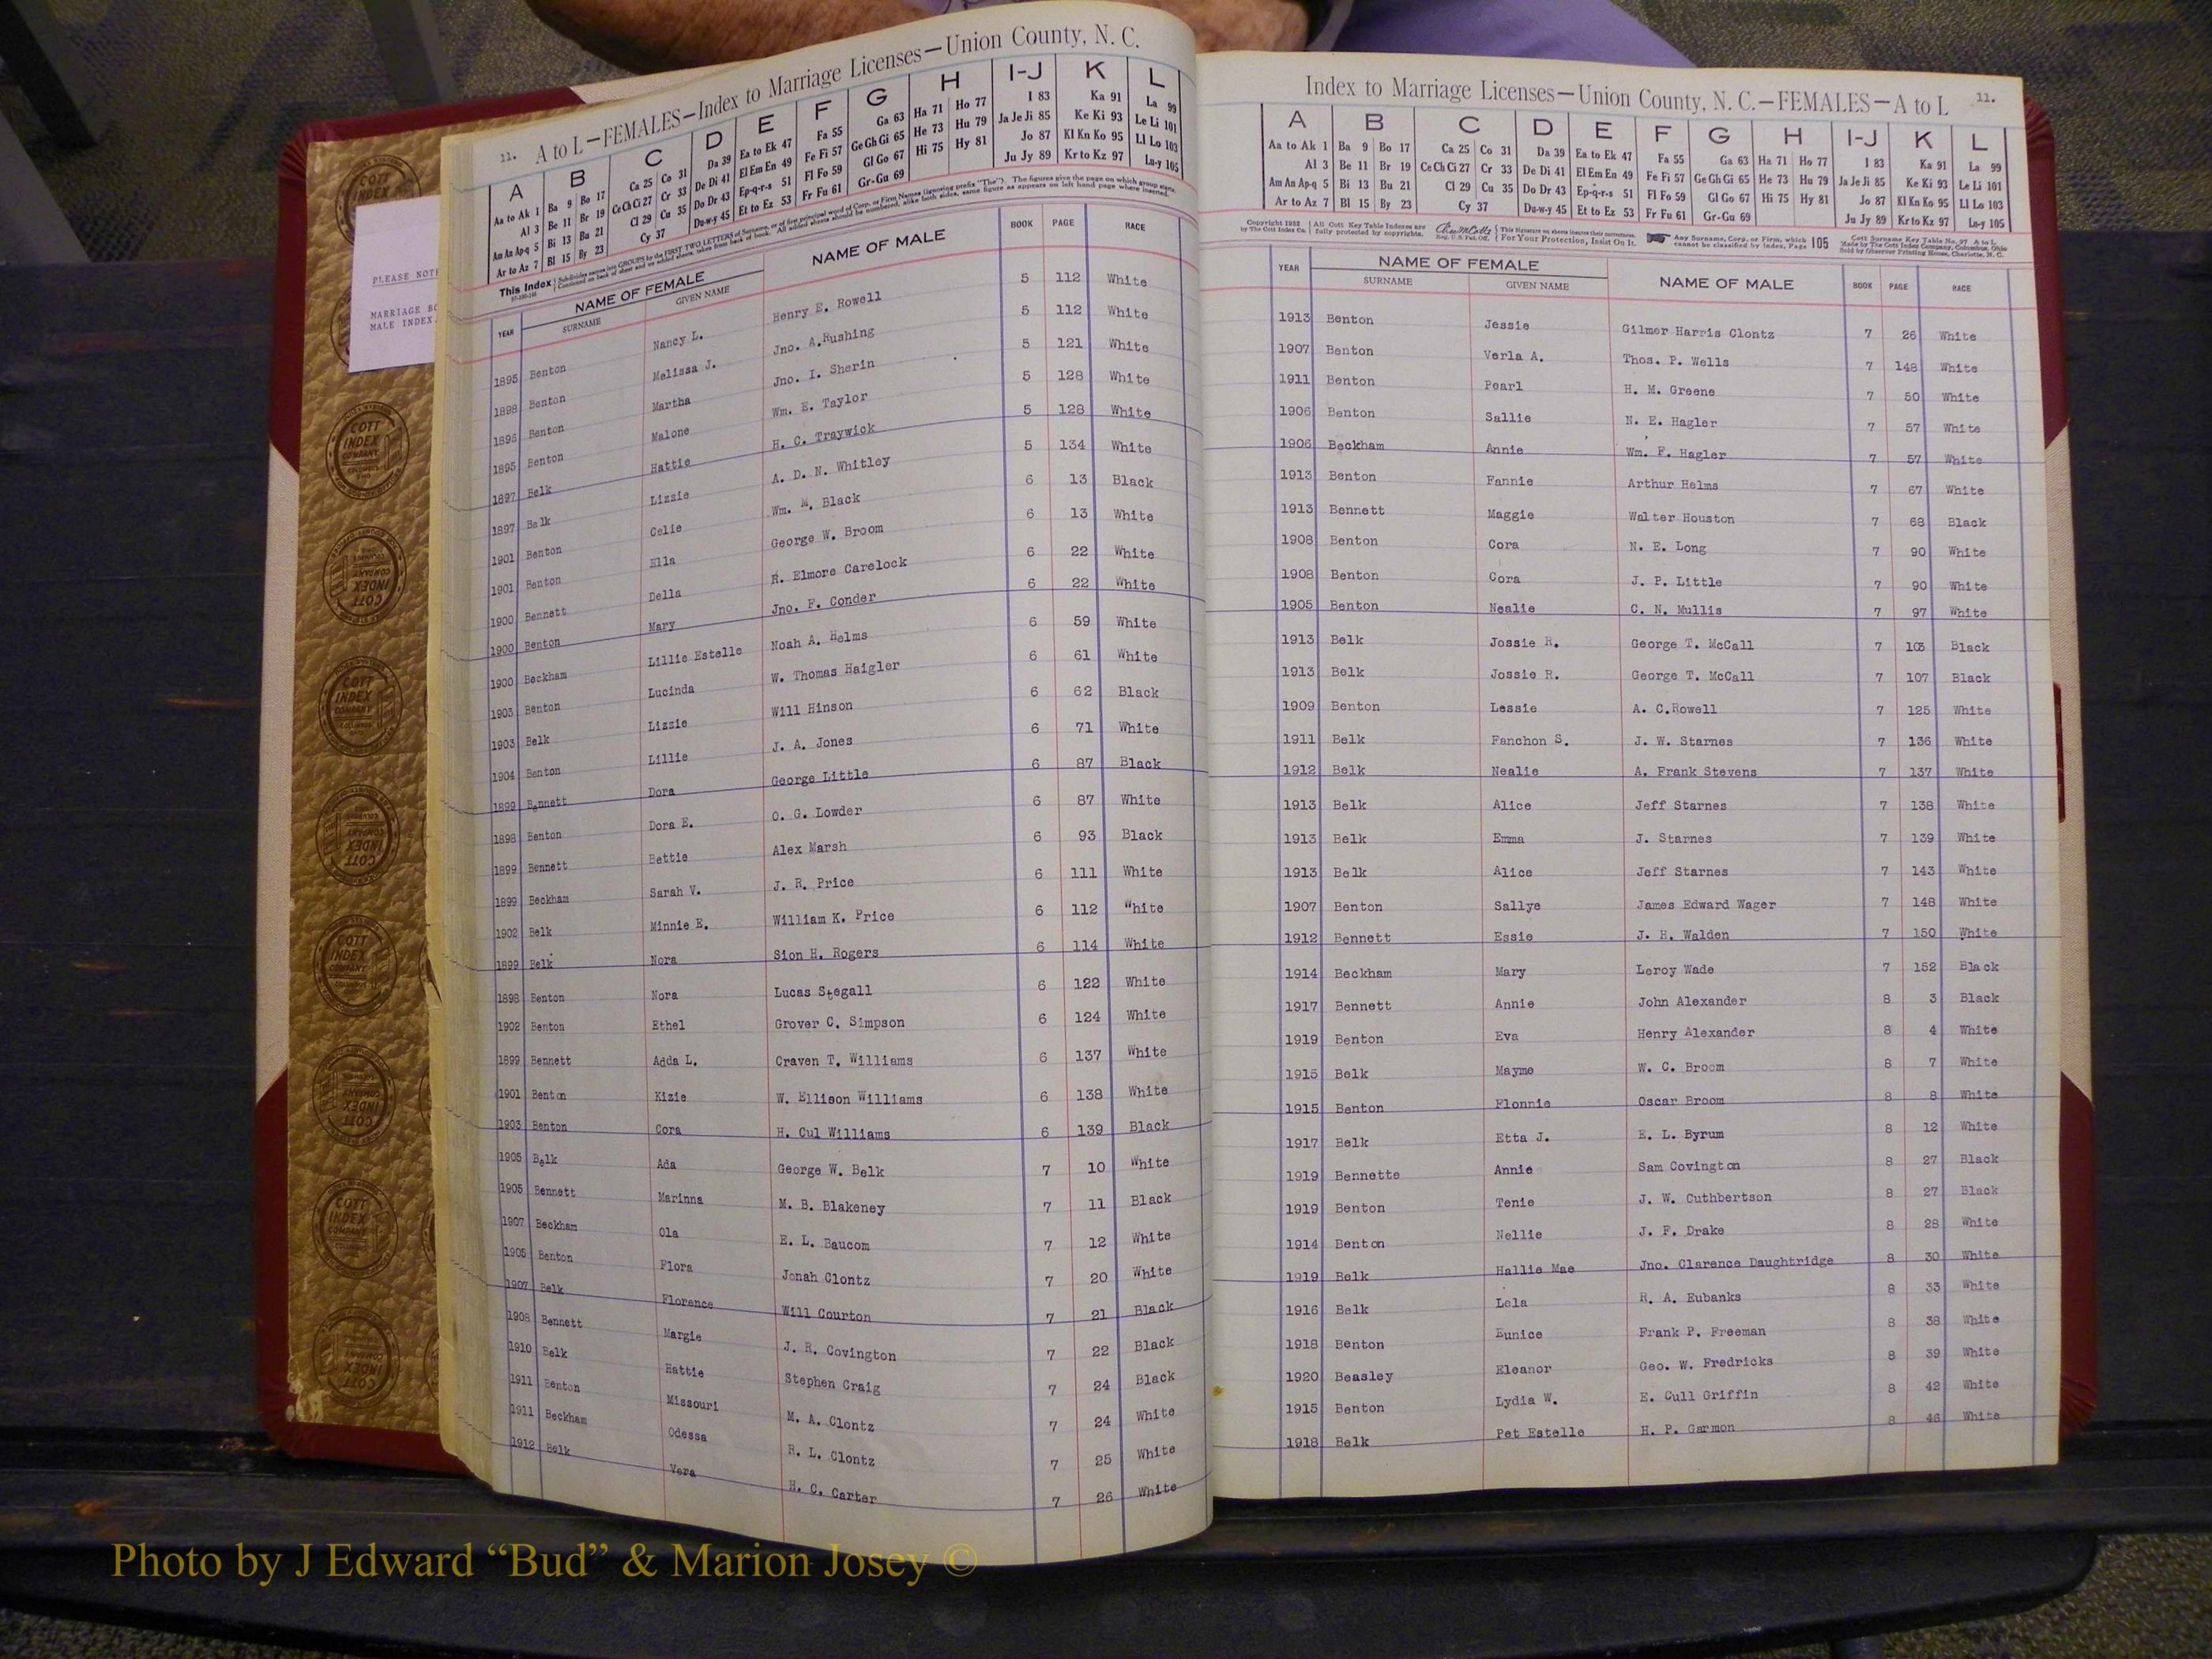 PLEASE NOTE
MARRIAGE BO
MALE INDEX.
11. A to L—FEMALES—Index to Marriage Licenses—Union County, N. C.
A B C D E F G H I-J K L
Aa to Ak 1 Ba 9 Bo 17 Ca 25 Co 31 Da 39 Ea to Ek 47 Fa 55 Ga 63 Ha 71 Ho 77 I 83 Ka 91 La 99
Al 3 Be 11 Br 19 Ce Ch Ci 27 Cr 33 De Di 41 El Em En 49 Fe Fi 57 Ge Gh Gi 65 He 73 Hu 79 Ja Je Ji 85 Ke Ki 93 Le Li 101
Am An Ap-q 5 Bi 13 Bu 21 Cl 29 Cu 35 Do Dr 43 Ep-q-r-s 51 Fl Fo 59 Gl Go 67 Hi 75 Hy 81 Jo 87 Kl Kn Ko 95 Ll Lo 103
Ar to Az 7 Bl 15 By 23 Cy 37 Du-w-y 45 Et to Ez 53 Fr Fu 61 Gr-Gu 69 Ju Jy 89 Kr to Kz 97 Lu-y 105
This Index Subdivides names into GROUPS by the FIRST TWO LETTERS of Surname, or of first principal word of Corp. or Firm Names (ignoring prefix "The"). The figures give the page on which group starts.
Continued on back of sheet and on added sheets, taken from back of book. All added sheets should be numbered, alike both sides, same figure as appears on left hand page where inserted.
YEAR NAME OF FEMALE SURNAME GIVEN NAME NAME OF MALE BOOK PAGE RACE
1895 Benton Nancy L. Henry E. Rowell 5 112 White
1898 Benton Melissa J. Jno. A.Rushing 5 112 White
Benton Martha Jno. I. Sherin 5 121 White
1895 Benton Malone Wm. E. Taylor 5 128 White
1897 Belk Hattie H. C. Traywick 5 128 White
1897 Belk Lizzie A. D. N. Whitley 5 134 White
1901 Benton Celie Wm. M. Black 6 13 Black
1901 Benton Ella George W. Broom 6 13 White
1900 Bennett Della R. Elmore Carelock 6 22 White
1900 Benton Mary Jno. F. Conder 6 22 White
1900 Beckham Lillie Estelle Noah A. Helms 6 59 White
1903 Benton Lucinda W. Thomas Haigler 6 61 White
1903 Belk Lizzie Will Hinson 6 62 Black
1904 Benton Lillie J. A. Jones 6 71 White
1899 Bennett Dora George Little 6 87 Black
1898 Benton Dora E. O. G. Lowder 6 87 White
1899 Bennett Bettie Alex Marsh 6 93 Black
1899 Beckham Sarah V. J. R. Price 6 111 White
1902 Belk Minnie E. William K. Price 6 112 White
1899 Belk Nora Sion H. Rogers 6 114 White
1898 Benton Nora Lucas Stegall 6 122 White
1902 Benton Ethel Grover C. Simpson 6 124 White
1899 Bennett Adda L. Craven T. Williams 6 137 White
1901 Benton Kizie W. Ellison Williams 6 138 White
1903 Benton Cora H. Cul Williams 6 139 Black
1905 Belk Ada George W. Belk 7 10 White
1905 Bennett Marinna M. B. Blakeney 7 11 Black
1907 Beckham Ola E. L. Baucom 7 12 White
1905 Benton Flora Jonah Clontz 7 20 White
1907 Belk Florence Will Courton 7 21 Black
1908 Bennett Margie J. R. Covington 7 22 Black
1910 Belk Hattie Stephen Craig 7 24 Black
1911 Benton Missouri M. A. Clontz 7 24 White
1911 Beckham Odessa R. L. Clontz 7 25 White
1912 Belk Vera H. C. Carter 7 26 White
Index to Marriage Licenses—Union County, N. C.—FEMALES—A to L 11.
A B C D E F G H I-J K L
Aa to Ak 1 Ba 9 Bo 17 Ca 25 Co 31 Da 39 Ea to Ek 47 Fa 55 Ga 63 Ha 71 Ho 77 I 83 Ka 91 La 99
Al 3 Be 11 Br 19 Ce Ch Ci 27 Cr 33 De Di 41 El Em En 49 Fe Fi 57 Ge Gh Gi 65 He 73 Hu 79 Ja Je Ji 85 Ke Ki 93 Le Li 101
Am An Ap-q 5 Bi 13 Bu 21 Cl 29 Cu 35 Do Dr 43 Ep-q-r-s 51 Fl Fo 59 Gl Go 67 Hi 75 Hy 81 Jo 87 Kl Kn Ko 95 Ll Lo 103
Ar to Az 7 Bl 15 By 23 Cy 37 Du-w-y 45 Et to Ez 53 Fr Fu 61 Gr-Gu 69 Ju Jy 89 Kr to Kz 97 Lu-y 105
All Cott Key Table Indexes are fully protected by copyrights. For Your Protection, Insist On It. Any Surname, Corp. or Firm, which cannot be classified by Index, Page 105
Made by The Cott Index Company, Columbus, Ohio
Sold by Observer Printing House, Charlotte, N. C.
YEAR NAME OF FEMALE SURNAME GIVEN NAME NAME OF MALE BOOK PAGE RACE
1913 Benton Jessie Gilmer Harris Clontz 7 26 White
1907 Benton Verla A. Thos. P. Wells 7 148 White
1911 Benton Pearl H. M. Greene 7 50 White
1906 Benton Sallie N. E. Hagler 7 57 White
1906 Beckham Annie Wm. F. Hagler 7 57 White
1913 Benton Fannie Arthur Helms 7 67 White
1913 Bennett Maggie Walter Houston 7 68 Black
1908 Benton Cora N. E. Long 7 90 White
1908 Benton Cora J. P. Little 7 90 White
1905 Benton Nealie C. N. Mullis 7 97 White
1913 Belk Jossie R. George T. McCall 7 103 Black
1913 Belk Jossie R. George T. McCall 7 107 Black
1909 Benton Lessie A. C.Rowell 7 125 White
1911 Belk Fanchon S. J. W. Starnes 7 136 White
1912 Belk Nealie A. Frank Stevens 7 137 White
1913 Belk Alice Jeff Starnes 7 138 White
1913 Belk Emma J. Starnes 7 139 White
1913 Belk Alice Jeff Starnes 7 143 White
1907 Benton Sallye James Edward Wager 7 148 White
1912 Bennett Essie J. H. Walden 7 150 White
1914 Beckham Mary Leroy Wade 7 152 Black
1917 Bennett Annie John Alexander 8 3 Black
1919 Benton Eva Henry Alexander 8 4 White
1915 Belk Mayme W. C. Broom 8 7 White
1915 Benton Flonnie Oscar Broom 8 8 White
1917 Belk Etta J. E. L. Byrum 8 12 White
1919 Bennette Annie Sam Covington 8 27 Black
1919 Benton Tenie J. W. Cuthbertson 8 27 Black
1914 Benton Nellie J. F. Drake 8 28 White
1919 Belk Hallie Mae Jno. Clarence Daughtridge 8 30 White
1916 Belk Lela R. A. Eubanks 8 33 White
1918 Benton Eunice Frank P. Freeman 8 38 White
1920 Beasley Eleanor Geo. W. Fredricks 8 39 White
1915 Benton Lydia W. E. Cull Griffin 8 42 White
1918 Belk Pet Estelle H. P. Garmon 8 46 White
COTT INDEX COMPANY
Photo by J Edward “Bud” & Marion Josey ©